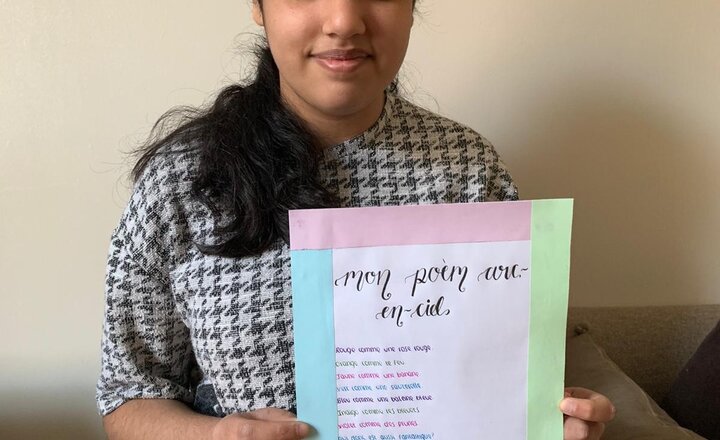 mon poèm arc-
en-ciel
Rouge comme une rose rouge
Orange comme le feu
Jaune comme une banane
Vert comme une sauterelle
Bleu comme une baleine bleue
Indigo comme les bleuets
Violet comme des prunes